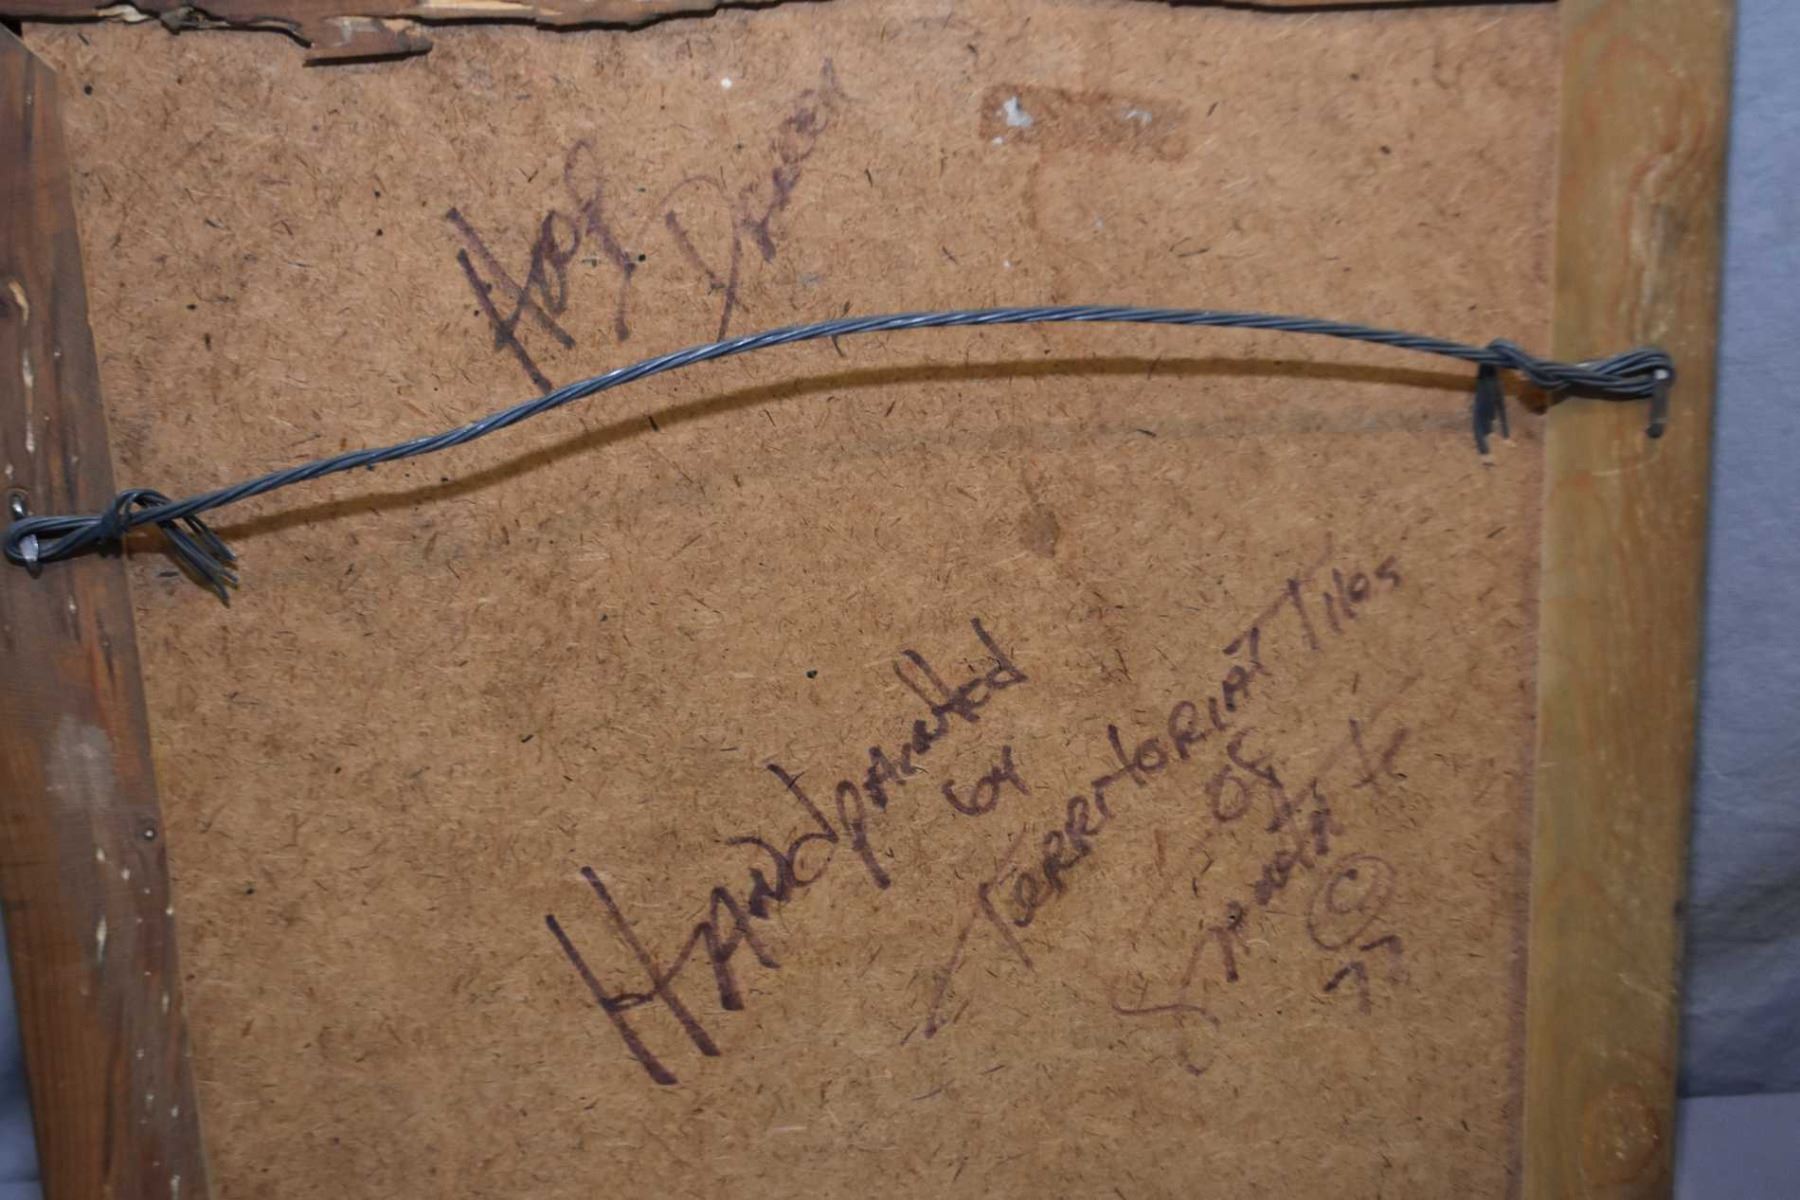 Hoop
Dancer
Handpainted
by
Territorial Tiles
of
Santa Fe
©
77